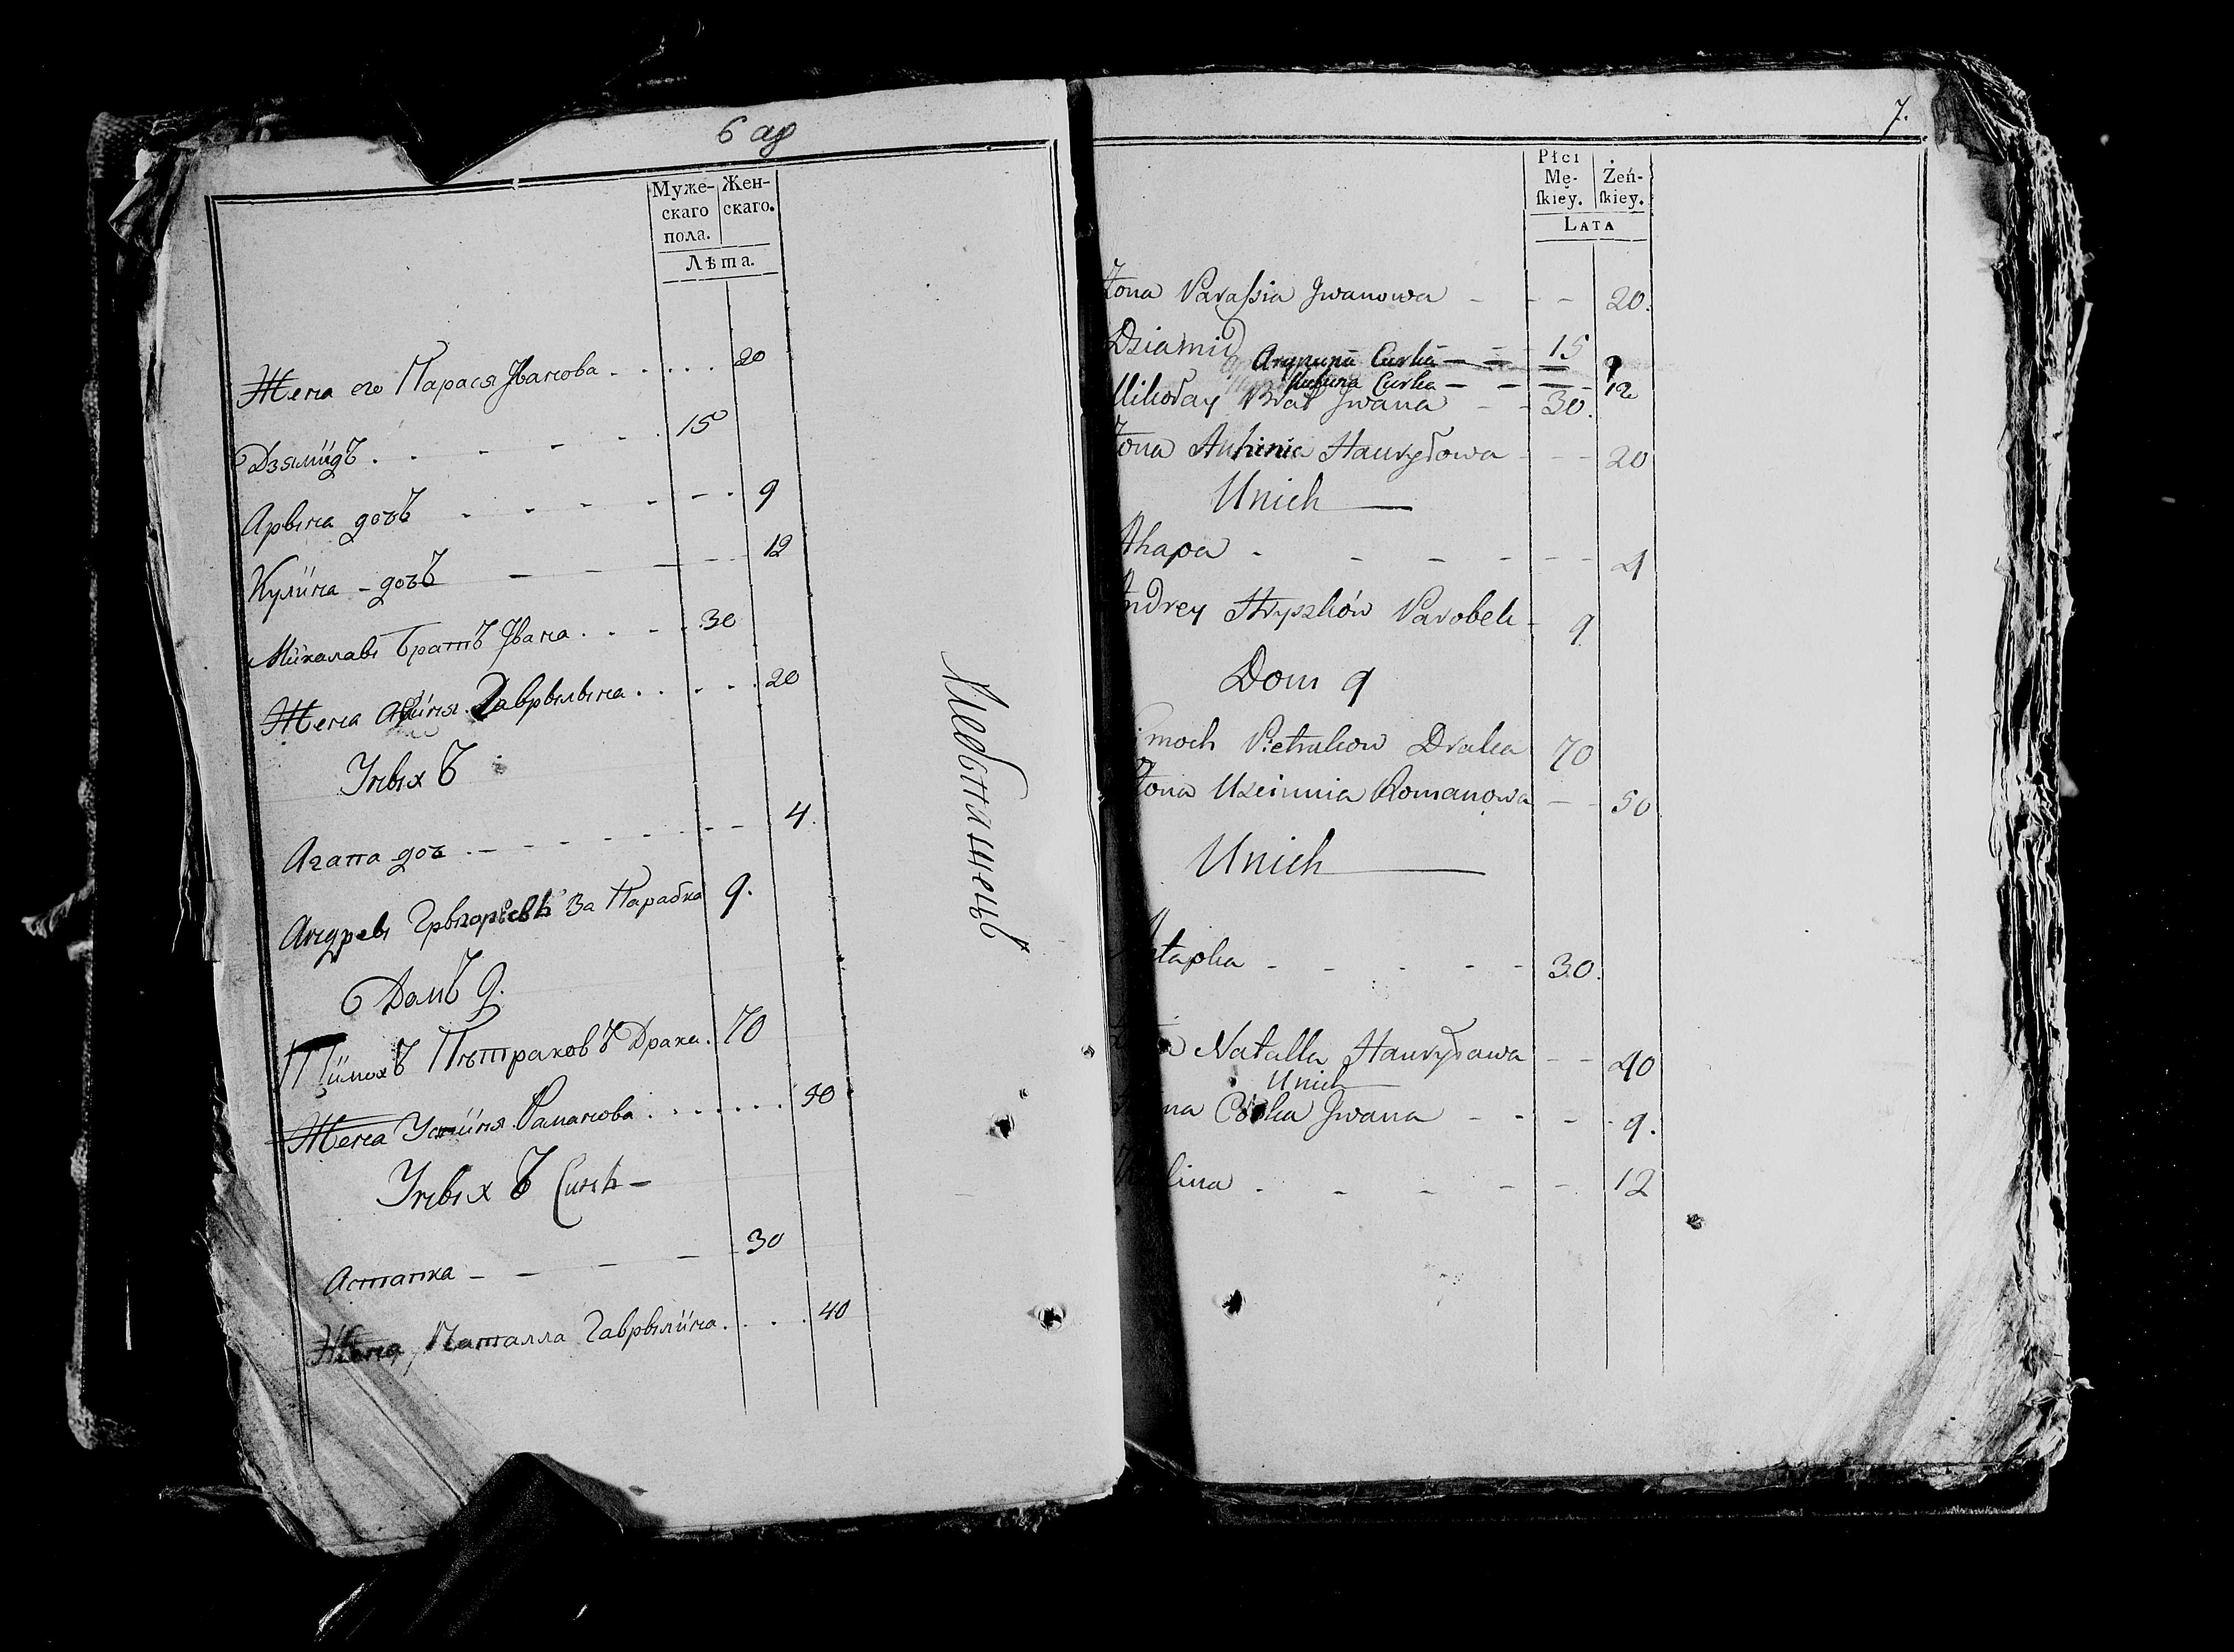 6 ад
Муже- Жен-
скаго скаго.
пола.
Лѣта.
Жена его Парася Iванова 20
Дзямидъ 15
Арына дочъ 9
Кулина - дочъ 12
Микалаы Братъ Iвана 30
Жена Гаврылына 20
У ных Ъ
Агапа доч 4.
Андреы Грыгорьевъ За Парабка 9.
Домъ 9.
Тимохъ Пѣтраковъ Драка. 70
Жена Усиння Раманова 50
У ных Ъ Сынъ -
Астапка 30
Жена Наталла Гаврылина 40
7.
Płci
Mę- Żeń-
ſkiey. ſkiey.
LATA
Żona Paraſsia Jwanowa 20.
Dziamid 15
Curka 9
Curka 12
Mikołay Brat Jwana 30.
Żona Hauryłowa 20
U nich
Ahapa 4
Andrey Hryszków Parobek 9
Dom 9
imoch Pietrukow Draka 70
Żona Uscinnia Romanowa 50
U nich
stapka 30.
Natalla Hauryławа 40
U nich
na Córka Jwana 9.
lina 12